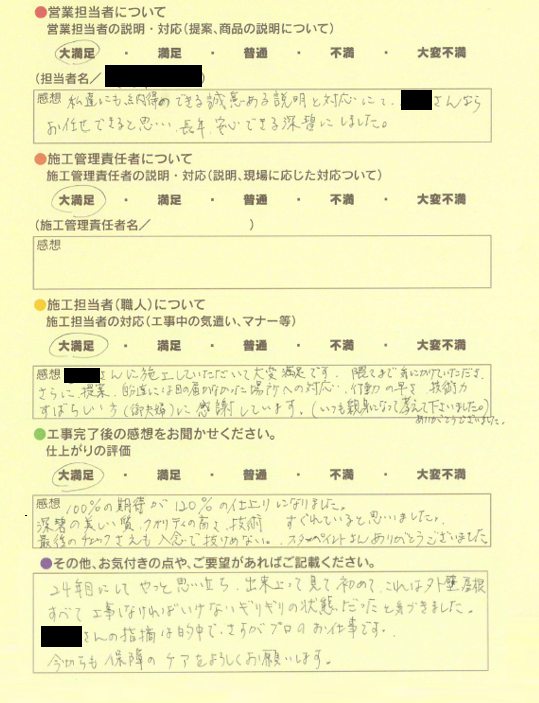 ●営業担当者について
営業担当者の説明・対応(提案、商品の説明について)
大満足 ・ 満足 ・ 普通 ・ 不満 ・ 大変不満
(担当者名/ )
感想 私達にも納得のできる誠意ある説明と対応にて、 さんなら
お任せできると思い、長年、安心できる深碧にしました。
●施工管理責任者について
施工管理責任者の説明・対応(説明、現場に応じた対応ついて)
大満足 ・ 満足 ・ 普通 ・ 不満 ・ 大変不満
(施工管理責任者名/ )
感想
●施工担当者(職人)について
施工担当者の対応(工事中の気遣い、マナー等)
大満足 ・ 満足 ・ 普通 ・ 不満 ・ 大変不満
感想 さんに施工していただいて大変満足です。隅々まで気にかけていただき、
さらに、提案、的確には目の届かなかった場所への対応、行動の早さ、技術力
すばらしい方(御夫婦)に感謝しています。(いつも親身になって考えて下さいました。)
ありがとうございました。
●工事完了後の感想をお聞かせください。
仕上がりの評価
大満足 ・ 満足 ・ 普通 ・ 不満 ・ 大変不満
感想 100%の期待が120%の仕上りになりました。
深碧の美しい質、クオリティの高さ、技術 すぐれていると思いました。
最後のチェックさえも入念で抜けめない。 スターペイントさんありがとうございました
●その他、お気付きの点や、ご要望があればご記載ください。
24年目にしてやっと思い立ち、出来上って見て初めて、これは外壁屋根
すべて工事しなければいけないギリギリの状態だったと気づきました。
さんの指摘は的中で、さすがプロのお仕事です。
今後も保障のケアをよろしくお願いします。